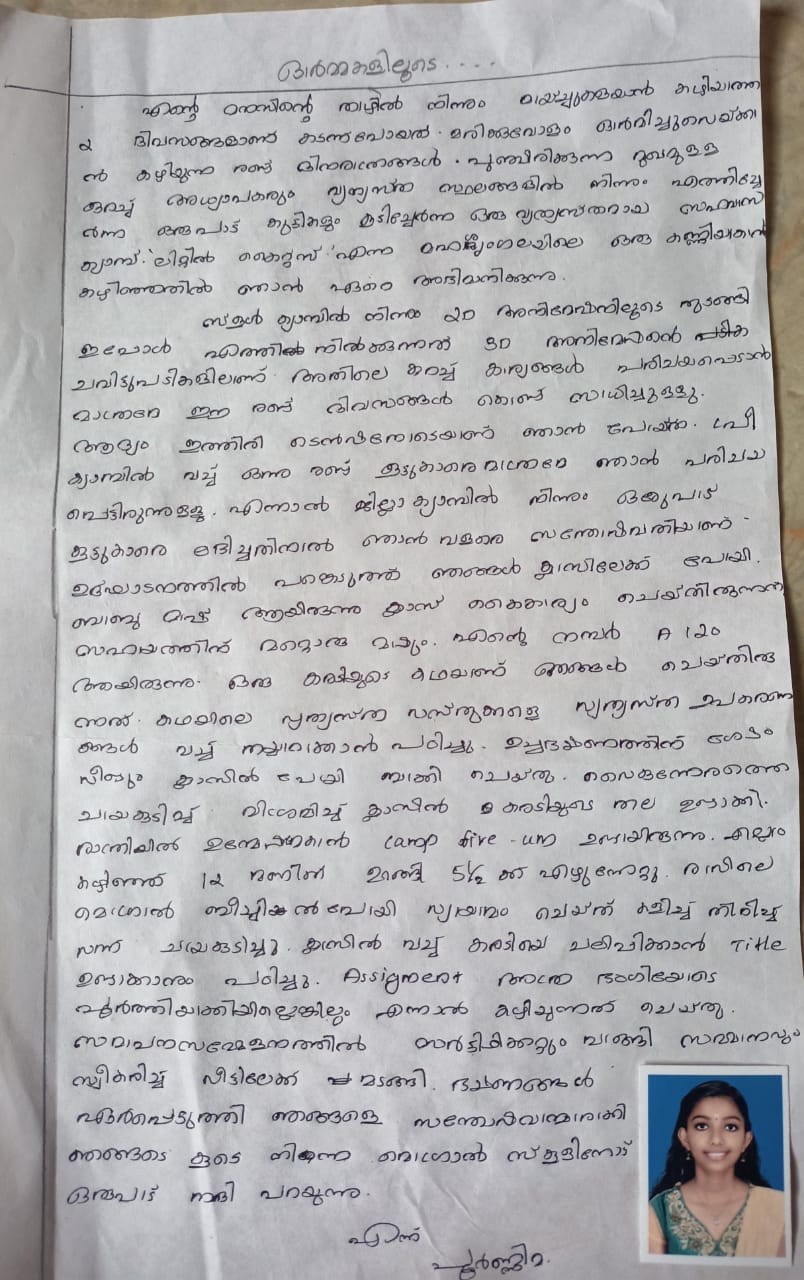 ഓർമ്മകളിലൂടെ....
എന്റെ മനസിന്റെ താഴിൽ നിന്നും മായ്ച്ചുകളയാൻ കഴിയാത്ത
2 ദിവസങ്ങളാണ് കടന്നുപോയത്. മരിക്കുവോളം ഓർമിച്ചുവെയ്ക്കാ
ൻ കഴിയുന്ന രണ്ട് ദിനരാത്രങ്ങൾ. പുഞ്ചിരിക്കുന്ന മുഖമുള്ള
കുറച്ച് അധ്യാപകരും വ്യത്യസ്ത സ്ഥലങ്ങളിൽ നിന്നും എത്തിച്ചേ
ർന്ന ഒരുപാട് കുട്ടികളും കൂടിച്ചേർന്ന ഒരു വ്യത്യസ്തമായ സഹവാസ
ക്യാമ്പ്. ലിറ്റിൽ കൈറ്റ്സ് എന്ന ഒരു കണ്ണിയാകാൻ
കഴിഞ്ഞതിൽ ഞാൻ ഏറെ അഭിമാനിക്കുന്നു.
സ്കൂൾ ക്യാമ്പിൽ നിന്നും 2D അനിമേഷനിലൂടെ തുടങ്ങി
ഇപ്പോൾ എത്തിൽ നിൽക്കുന്നത് 3D അനിമേഷന്റെ
ചവിട്ടുപടികളിലാണ്. അതിലെ കുറച്ച് കാര്യങ്ങൾ പരിചയപ്പെടാൻ
മാത്രമേ ഈ രണ്ട് ദിവസങ്ങൾ കൊണ്ട് സാധിച്ചുള്ളു.
ആദ്യം ഇത്തിരി ടെൻഷനോടെയാണ് ഞാൻ പോയത്. പ്രീ
ക്യാമ്പിൽ വച്ച് ഒന്നു രണ്ട് കൂട്ടുകാരെ മാത്രമേ ഞാൻ പരിചയ
പ്പെട്ടിരുന്നുള്ളൂ. എന്നാൽ ജില്ലാ ക്യാമ്പിൽ നിന്നും ഒരുപാട്
കൂട്ടുകാരെ ലഭിച്ചതിനാൽ ഞാൻ വളരെ സന്തോഷവതിയാണ്.
ഉദ്ഘാടനത്തിൽ പങ്കെടുത്ത് ഞങ്ങൾ ക്ലാസിലേക്ക് പോയി.
ബാബു മാഷ് ആയിരുന്നു ക്ലാസ് കൈകാര്യം ചെയ്തിരുന്നത്
സഹായത്തിന് മറ്റൊരു മാഷും. എന്റെ നമ്പർ A 120
ആയിരുന്നു. ഒരു കരടിയുടെ കഥയാണ് ഞങ്ങൾ ചെയ്തിരു
ന്നത്. കഥയിലെ വ്യത്യസ്ത വസ്തുക്കളെ വ്യത്യസ്ത ഉപകരണ
ങ്ങൾ വച്ച് തയ്യാറാക്കാൻ പഠിച്ചു. ഉച്ചഭക്ഷണത്തിന് ശേഷം
വീണ്ടും ക്ലാസിൽ പോയി ബാക്കി ചെയ്തു. വൈകുന്നേരത്തെ
ചായകുടിച്ച് വിശ്രമിച്ച് ക്ലാസിൽ കരടിയുടെ തല ഉണ്ടാക്കി.
രാത്രിയിൽ ഉന്മേഷമേകാൻ camp fire -um ഉണ്ടായിരുന്നു. എല്ലാം
കഴിഞ്ഞ് 12 മണിക്ക് ഉറങ്ങി 5½ ക്ക് എഴുന്നേറ്റു. രാവിലെ
ബീച്ചിൽ പോയി വ്യായാമം ചെയ്ത് കളിച്ച് തിരിച്ച്
വന്ന് ചായകുടിച്ചു. ക്ലാസിൽ വച്ച് കരടിയെ ചലിപ്പിക്കാൻ Title
ഉണ്ടാക്കാനും പഠിച്ചു. Assignment അത്ര ഭംഗിയോടെ
പൂർത്തിയാക്കിയില്ലെങ്കിലും എന്നാൽ കഴിയുന്നത് ചെയ്തു.
സമാപനസമ്മേളനത്തിൽ സർട്ടിഫിക്കറ്റും വാങ്ങി സമ്മാനവും
സ്വീകരിച്ച് വീട്ടിലേക്ക് മടങ്ങി. ഭക്ഷണങ്ങൾ
ഏർപ്പെടുത്തി ഞങ്ങളെ സന്തോഷവാന്മാരാക്കി
ഞങ്ങടെ കൂടെ നിന്ന സ്കൂളിനോട്
ഒരുപാട് നന്ദി പറയുന്നു.
എന്ന്
പൂർണ്ണിമ.